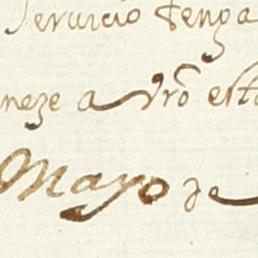 servicio tenga
neze a vrõ esta
Mayo de